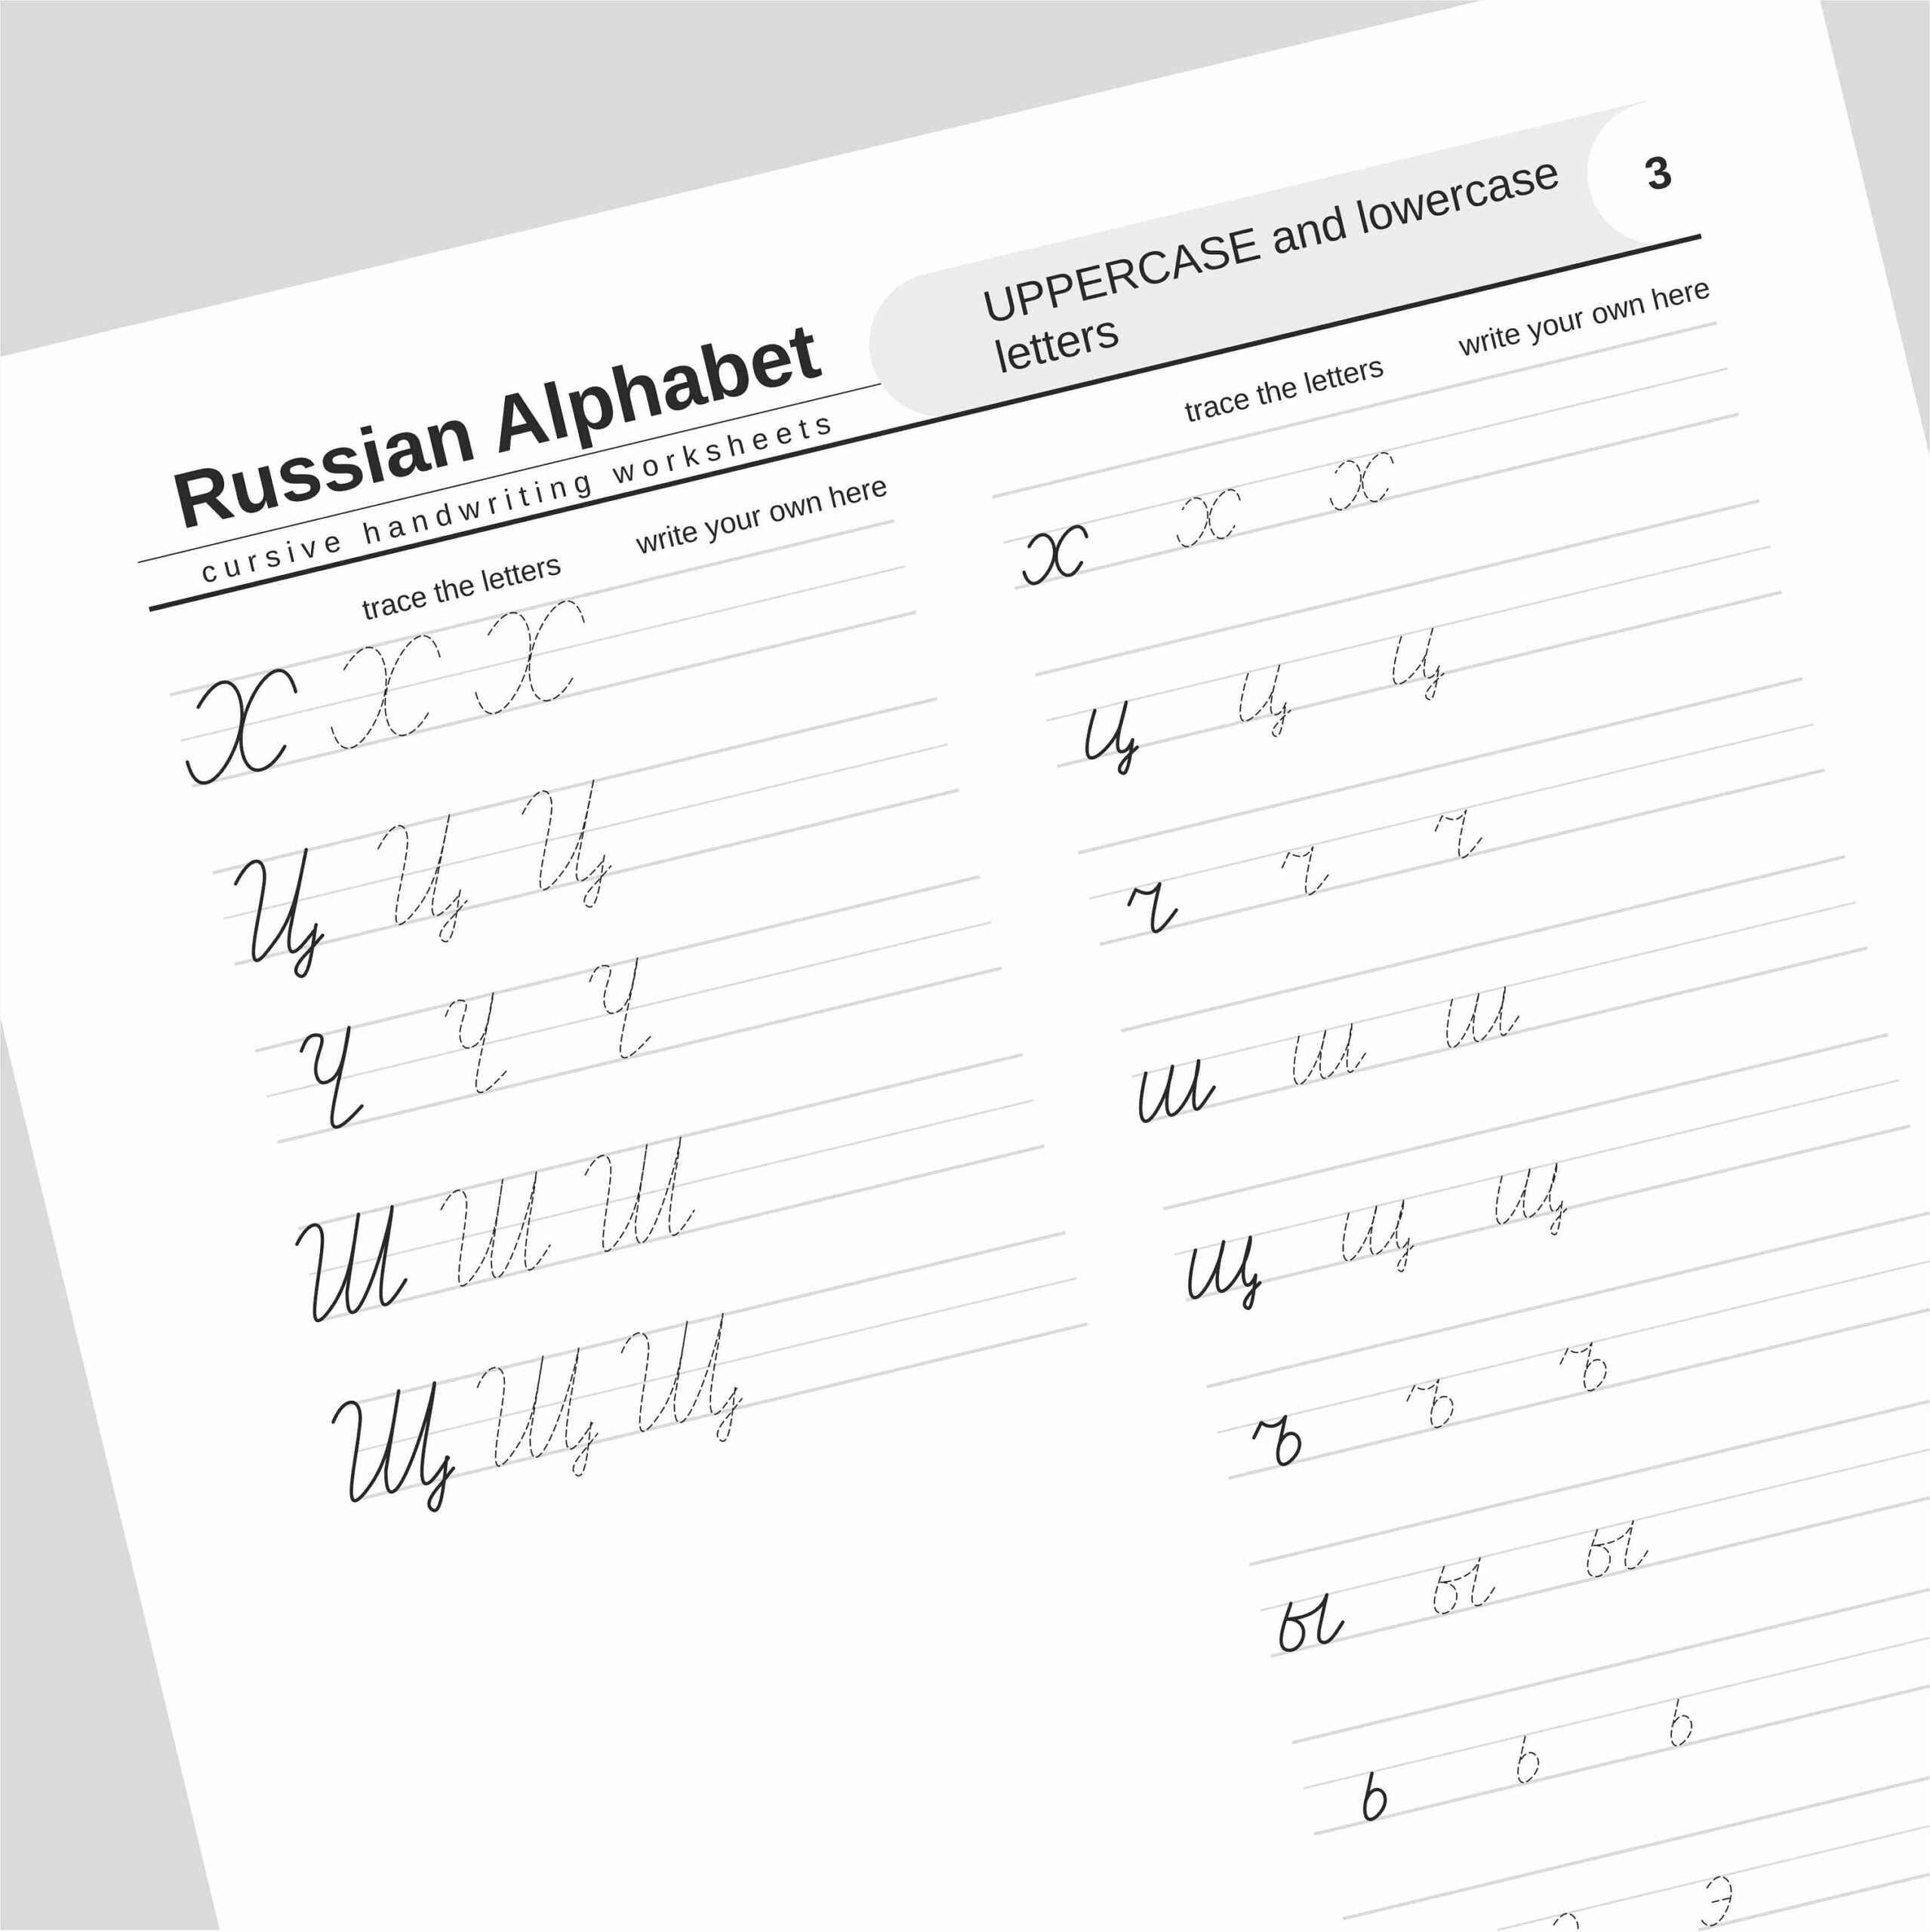 UPPERCASE and lowercase
letters
3
Russian Alphabet
cursive handwriting worksheets
trace the letters write your own here
Х Х Х
Ц Ц Ц
Ч Ч Ч
Ш Ш Ш
Щ Щ Щ
trace the letters write your own here
х х х
ц ц ц
ч ч ч
ш ш ш
щ щ щ
ъ ъ ъ
ы ы ы
ь ь ь
э